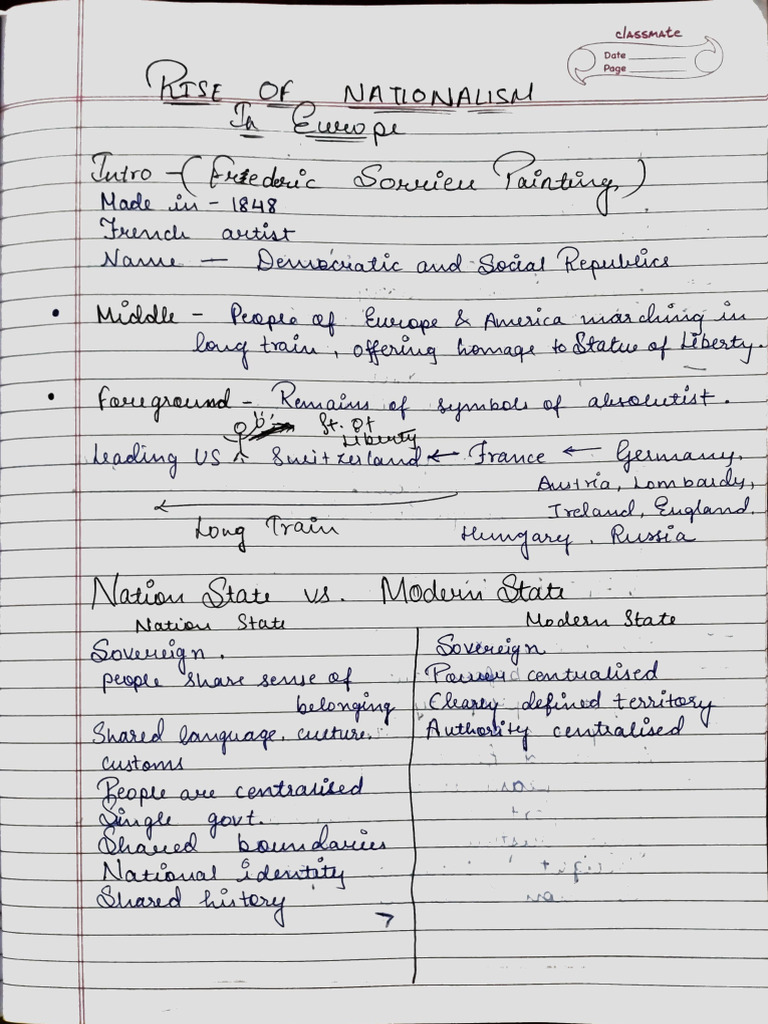 classmate
Date
Page
RISE OF NATIONALISM
In Europe
Intro - (Frederic Sorrieu Painting)
Made in - 1848
French artist
Name — Democratic and Social Republics
• Middle - People of Europe & America marching in
long train, offering homage to Statue of Liberty.
• Foreground - Remains of symbols of absolutist.
St. Of
Liberty
Leading US Switzerland ← France ← Germany,
Austria, Lombardy,
Ireland, England.
Long Train
Hungary. Russia
Nation State vs. Modern State
Nation State Modern State
Sovereign. Sovereign
people share sense of Power centralised
belonging Clearly defined territory
Shared language, culture, Authority centralised
customs
People are centralised
Single govt.
Shared boundaries
National identity
Shared history